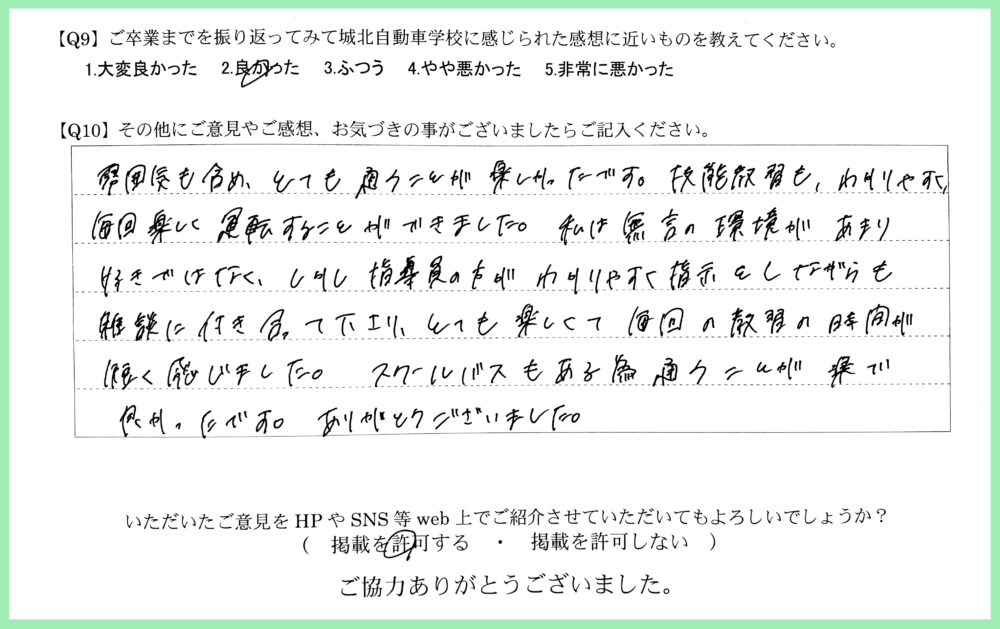 【Q9】ご卒業までを振り返ってみて城北自動車学校に感じられた感想に近いものを教えてください。
1.大変良かった 2.良かった 3.ふつう 4.やや悪かった 5.非常に悪かった
【Q10】その他にご意見やご感想、お気づきの事がございましたらご記入ください。
雰囲気も含め、とても通うことが楽しかったです。技能教習も、わかりやすく、
毎回楽しく運転することができました。私は無言の環境があまり
好きではなく、しかし指導員の方がわかりやすく指示をしながらも
雑談に付き合って下さり、とても楽しくて毎回の教習の時間が
短く感じました。スクールバスもある為通うことが楽で
良かったです。ありがとうございました。
いただいたご意見をHPやSNS等web上でご紹介させていただいてもよろしいでしょうか？
( 掲載を許可する ・ 掲載を許可しない )
ご協力ありがとうございました。